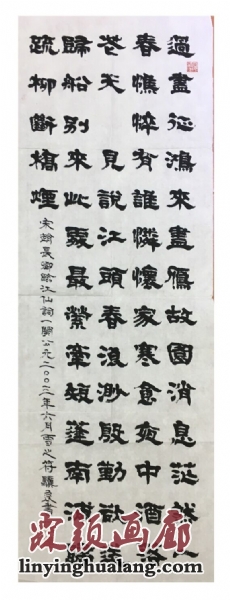 過盡征鴻來盡鴈故園消息茫然一
春憔悴有誰憐懷家寒食夜中酒落
花天 見說江頭春浪渺殷勤欲送
歸船別來此處最縈牽短蓬南浦雨
疏柳斷橋煙
宋趙長卿臨江仙詞一闋公元二〇〇三年六月雪之符驥良書
霖颖画廊
linyinghualang.com